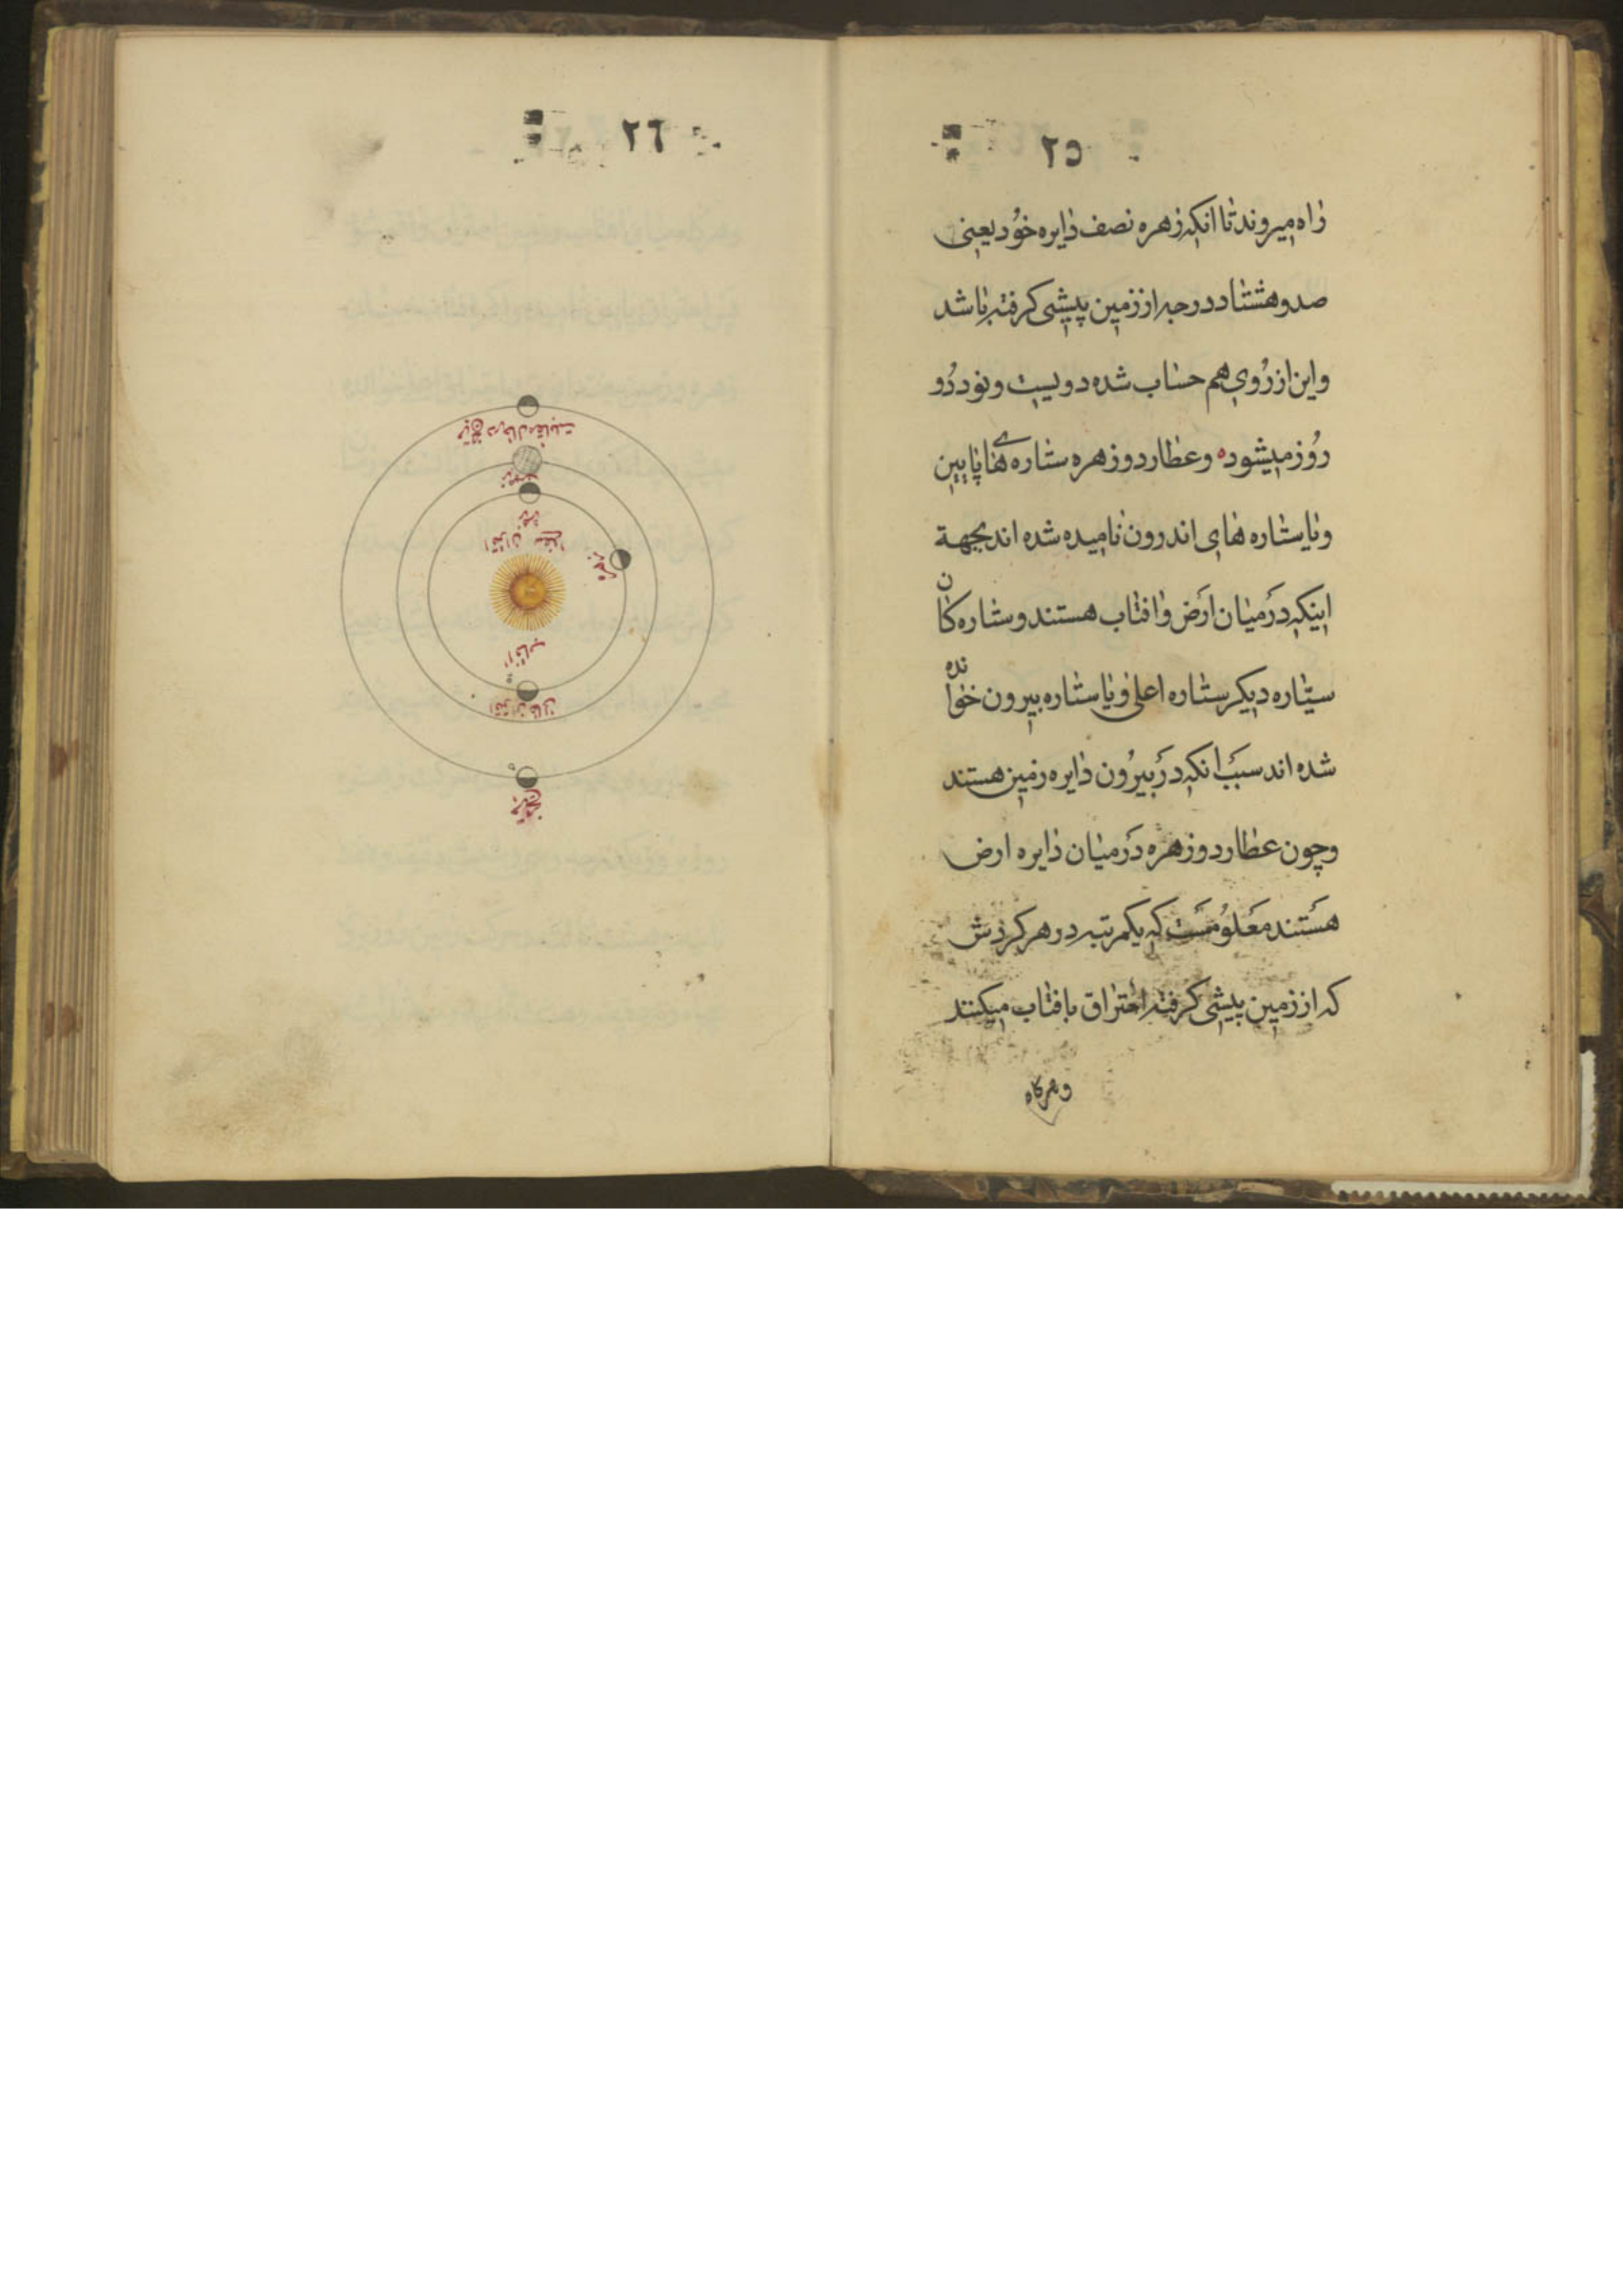 ٢٥
راه میروند تا انکه زهره نصف دایره خود یعنی
صد و هشتاد درجه از زمین پیشی کرفته باشد
و این از روی هم حساب شده دویست و نود دو
روز میشود ه و عطارد و زهره ستاره های پایین
و یا ستاره های اندرون نامیده شده اند بجهة
اینکه در میان ارض و افتاب هستند و ستاره کان
سیّاره دیکر ستاره اعلی و یا ستاره بیرون خوانده
شده اند سبب انکه در بیرون دایره زمین هستند
و چون عطارد و زهره در میان دایره ارض
هستند معلومست که یکمرتبه در هر کردش
که از زمین پیشی کرفته احتراق با افتاب میکنند
و هرکاه
٢٦
مریخ در حال مقابلت
زمین
زهره
اقتران سفلی
زهره
افتاب
مریخ